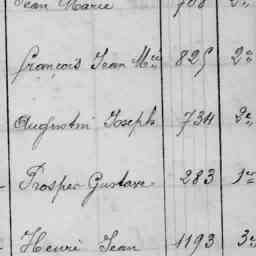 Jean Marie 708 2e
François Jean Mie 825 2e
Augustin Joseph 734 2e
Prosper Gustave 283 1er
Henri Jean 1193 3e